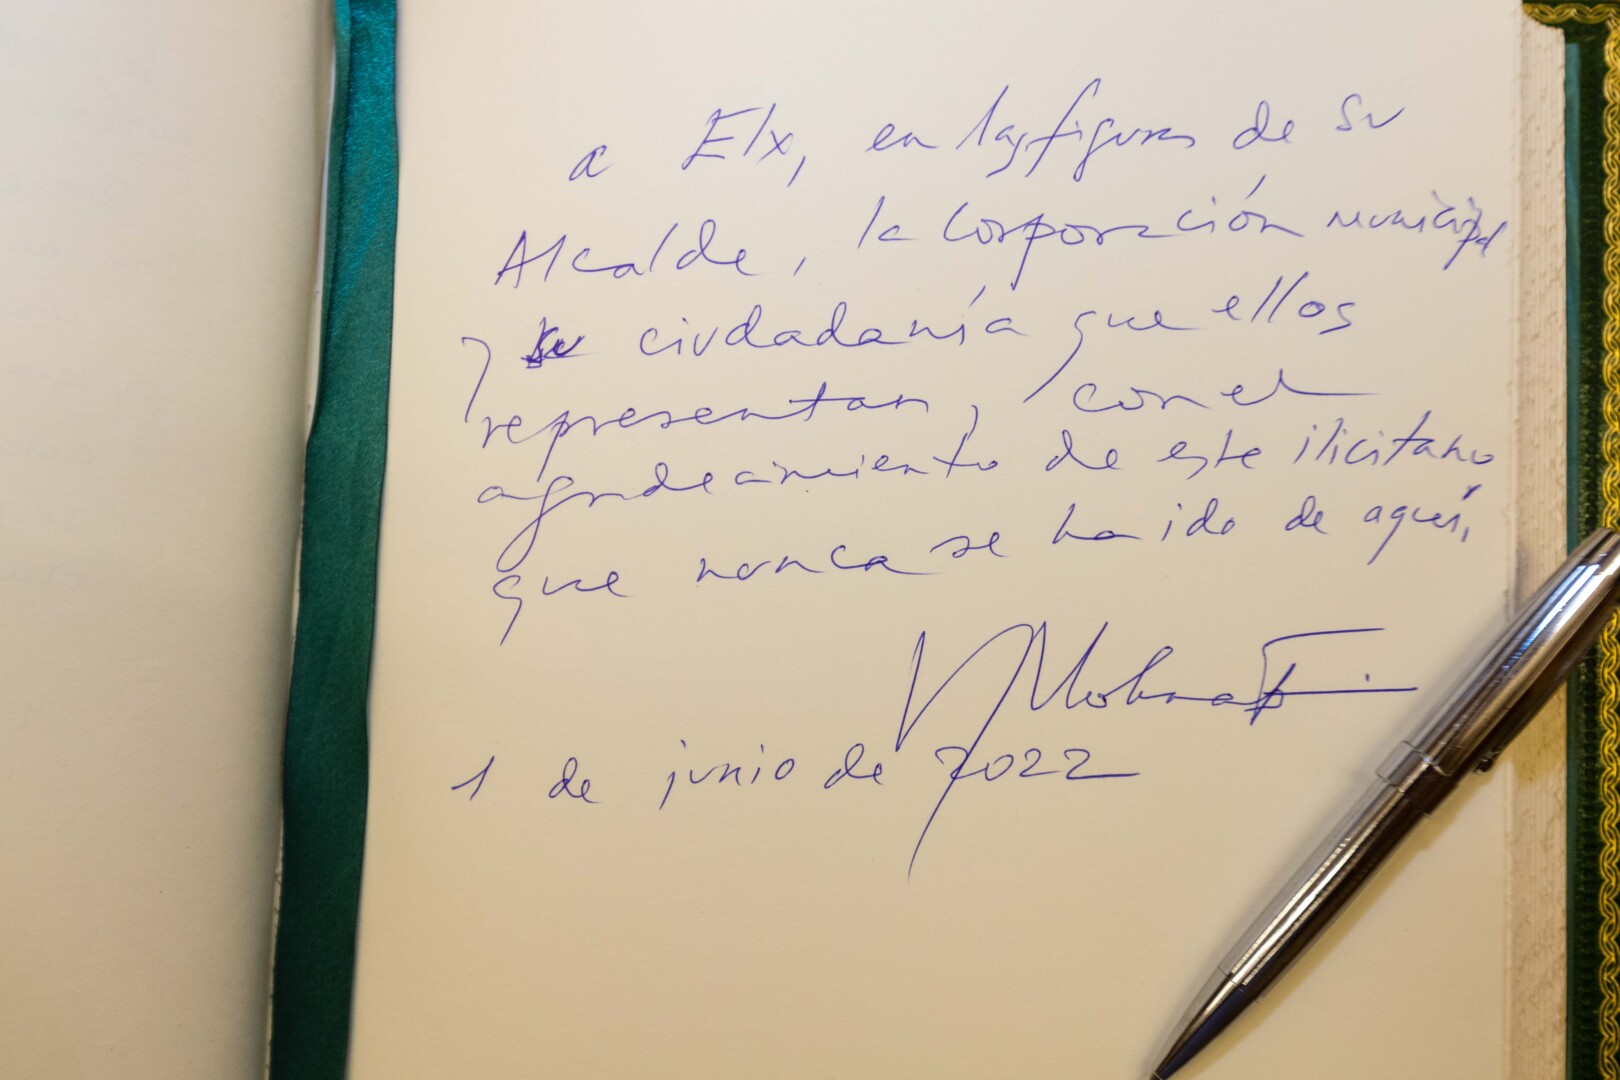 a Elx, en las figuras de su
Alcalde, la Corporación municipal
y su ciudadanía que ellos
representan, con el
agradecimiento de este ilicitano
que nunca se ha ido de aquí,
Molina
1 de junio de 2022